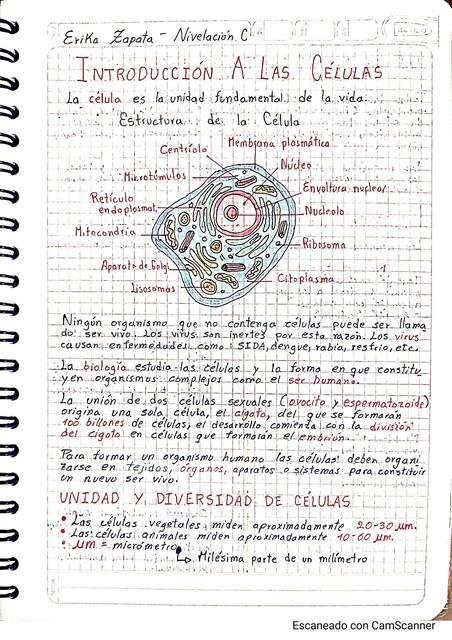 Erika Zapata - Nivelación C
INTRODUCCIÓN A LAS CÉLULAS
La célula es la unidad fundamental de la vida.
Estructura de la Célula
Membrana plasmática
Centríolo
Núcleo
Microtúbulos
Envoltura nuclear
Retículo
endoplasmat.
Nucleolo
Mitocondria
Ribosoma
Aparato de Golgi
Citoplasma
Lisosomas
Ningún organismo que no contenga células puede ser llama
do ser vivo. Los virus son inertes por esta razón. Los virus
causan enfermedades como: SIDA, dengue, rabia, resfrío, etc.
La biología estudia las células y la forma en que constitu
yen organismos complejos como el ser humano.
La unión de dos células sexuales (ovocito y espermatozoide)
origina una sola célula, el cigoto, del que se formarán
100 billones de células, el desarrollo comienza con la división
del cigoto en células que formarán el embrión.
Para formar un organismo humano las células deben organi
zarse en tejidos, órganos, aparatos o sistemas para constituir
un nuevo ser vivo.
UNIDAD Y DIVERSIDAD DE CÉLULAS
• Las células vegetales miden aproximadamente 20-30 µm.
• Las células animales miden aproximadamente 10-60 µm.
• µm = micrómetro
↳ Milésima parte de un milímetro
Escaneado con CamScanner